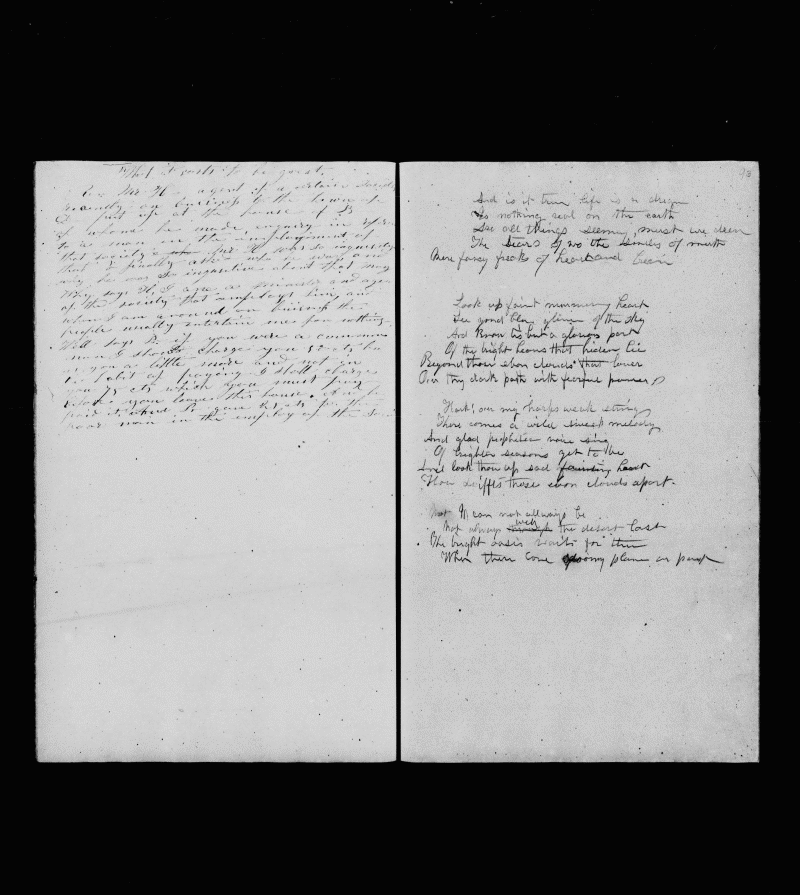 What it costs to be great
Rev Mr H. agent of a
recently on business to the town of
D. put up at the house of B
of whom he made enquiry in
to a man in the employment of
that society Mr B was so inquisitive
that I finally asked who he was and
why he was so inquisitive about that man
Why says H, I am a minister and agent
of the society that employs him, and
when I am around on business the
people usually entertain me for nothing.
Well says B if you were a common
man I should charge you 50 cts but
as you a little more and not in
the habit of paying I shall charge
you 75 cts which you must pay
before you leave this house.
paid it, and B gave 25 cts to the
poor man in the employ of the
And is it true life is a dream
Is nothing real on the earth
See all things seeming, must we deem
The tears of wo the smiles of mirth
Mere fancy freaks of heart and brain
Look up faint murmuring heart
See yond blay glimer of the sky
And know tis but a glorious part
Of the bright heavns that hiden lie
Beyond those ebon clouds that lower
Oer thy dark path with fearful power
Hark! oer my harps weak string
There comes a wild sweet melody
And glad prophetic voice sing
Of brighter seasons yet to be
And look thou up sad fainting heart
How swiftly those ebon clouds apart.
Not It can not allways be
Not always will the desert last
The bright oasis waits for thee
When there lone gloomy plains are past